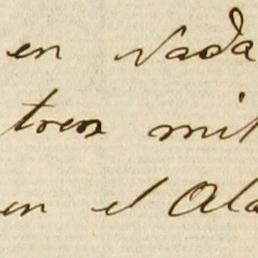 en nada
tres mil
en el Ala